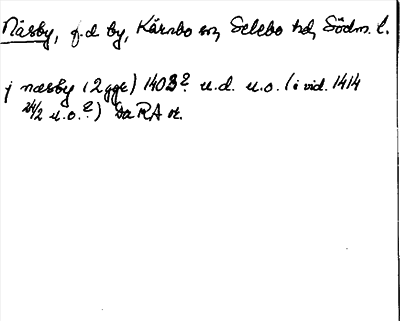 Näsby, f.d. by, Kärnbo sn, Selebo hd, Södm. l.
j næsby (2 ggr) 1403? u.d. u.o. (i vid. 1414
24/2 u.o.?) Da RA or.